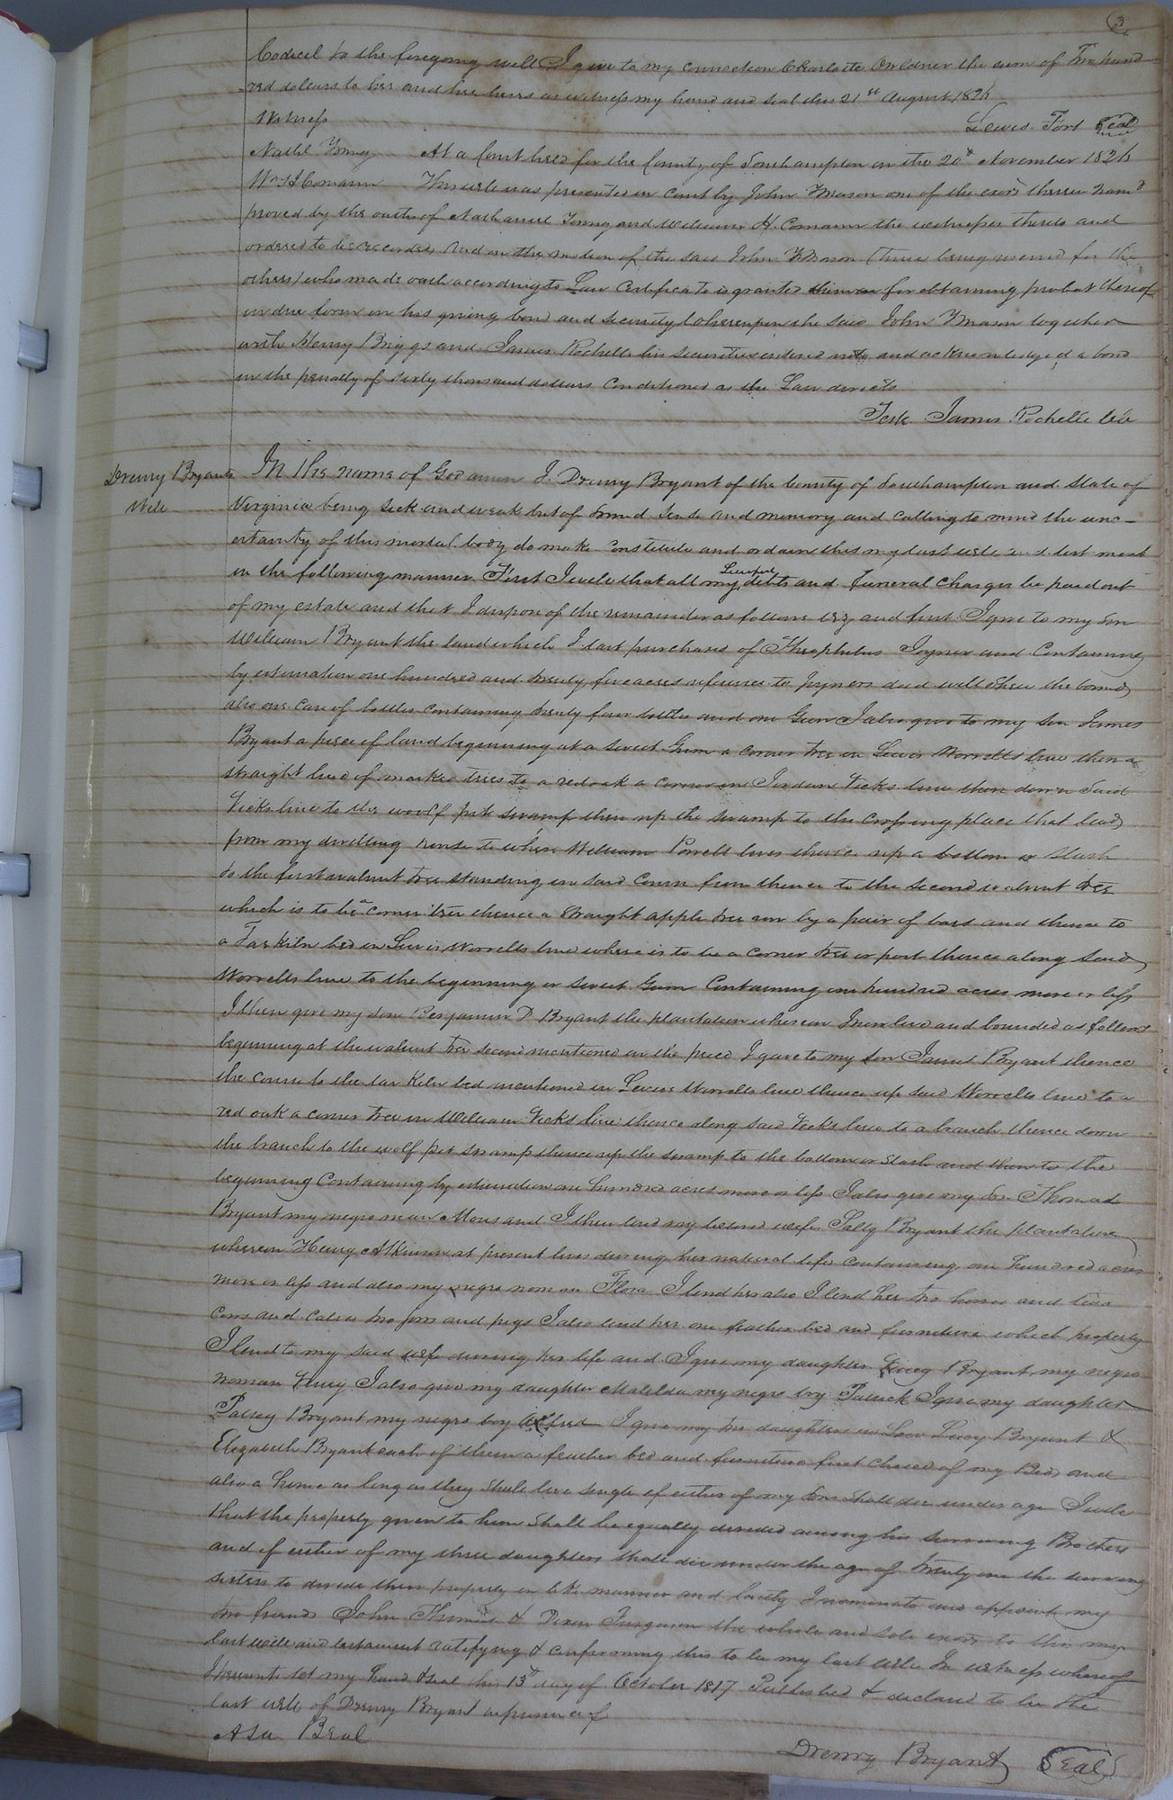 3
Codicil to the foregoing will I give to my connection Charlotte the sum of Two hund
red dollars to her and her heirs as witness my hand and seal this 21st August 1826
Witness Lewis Fort Seal
Nathl Young At a Court held for the County of Southampton on the 20th November 1826
Wm H Comann This will was presented in Court by John Mason one of the exors therein nam'd
proved by the oaths of Nathaniel Young and William H. Comann the witnesses thereto and
ordered to be recorded And on the motion of the said John Mason (Time being reserved for the
others) who made oath according to Law Certificate is granted for obtaining probat thereof
in due form on his giving bond and security Whereupon the said John Mason together
with Henry Briggs and James Rochelle his securities entered into and acknowledged a bond
in the penalty of sixty thousand dollars Conditioned as the Law directs
Teste James Rochelle Clk
Drewry Bryants
Will
In the name of God amen I Drewry Bryant of the County of Southampton and State of
Virginia being sick and weak but of sound sense and memory and calling to mind the unc-
ertainty of this mortal body do make constitute and ordain this my last will and testment
in the following manner First I will that all my lawful debts and funeral charges be paid out
of my estate and that I dispose of the remainder as follows viz and first I give to my son
William Bryant the land which I last purchased of Theophilus Joyner and Containing
by estimation one hundred and twenty five acres reference to Joyners deed will shew the bounds
also one case of bottles containing twenty four bottles and one Gun I also give to my son James
Bryant a piece of land beginning at a sweet Gum a corner tree on Lewis Worrells line then a
straight line of marked trees to a red oak a corner in Jordan Vicks line then down Said
Vicks line to the woolf pit swamp then up the swamp to the crossing place that leads
from my dwelling house to where William Powell lives thence up a bottom or Slash
to the first walnut tree standing in said from thence to the second walnut tree
which is to be a corner tree thence a straight apple tree row by a pair of bars and thence to
a Tar Kiln bed in Lewis Worrells line where is to be a corner tree or post thence along said
Worrells line to the beginning a sweet Gum Containing one hundred acres more or less
I then give my son Benjamin D Bryant the plantation whereon I now live and bounded as follows
beginning at the walnut tree second mentioned in the piece I gave to my son James Bryant thence
the course to the tar Kiln bed mentioned in Lewis Worrells line thence up said Worrells line to a
red oak a corner tree in William Vicks line thence along said Vicks line to a branch thence down
the branch to the wolf pit swamp thence up the swamp to the bottom or slash and then to the
beginning Containing by estimation one hundred acres more or less I also give my son Thomas
Bryant my negro man Moses and I then lend my beloved wife Sally Bryant the plantation
whereon Henry Atkinson at present lives during her natural life containing one hundred acres
more or less and also my negro woman Flora I lend her also I lend her two horses and two
Cows and calves two sows and pigs I also lend her one feather bed and furniture which property
I lend to my said wife during her life and I give my daughter Bryant my negro
woman I also give my daughter Matilda my negro boy Patrick I give my daughter
Patsey Bryant my negro boy Alfred I give my two daughters in Law Lucy Bryant &
Elizabeth Bryant each of them a feather bed and furniture first choice of my Beds and
also a home as long as they shall live single if either of my Sons shall die under age I will
that the property given to him shall be equally devided among his surviving Brothers
and if either of my three daughters shall die under the age of twenty one the surviving
sisters to devide their property in like manner and lastly I nominate and appoint my
two friends John Thomas & Dixon Turgason the whole and sole exors to this my
last will and testament ratifying & confirming this to be my last will In witness whereof
I hereunto set my hand & seal this 13th day of October 1817 Published & declared to be the
last will of Drewry Bryant in presence of
Asa Beal
Drewry Bryant Seal